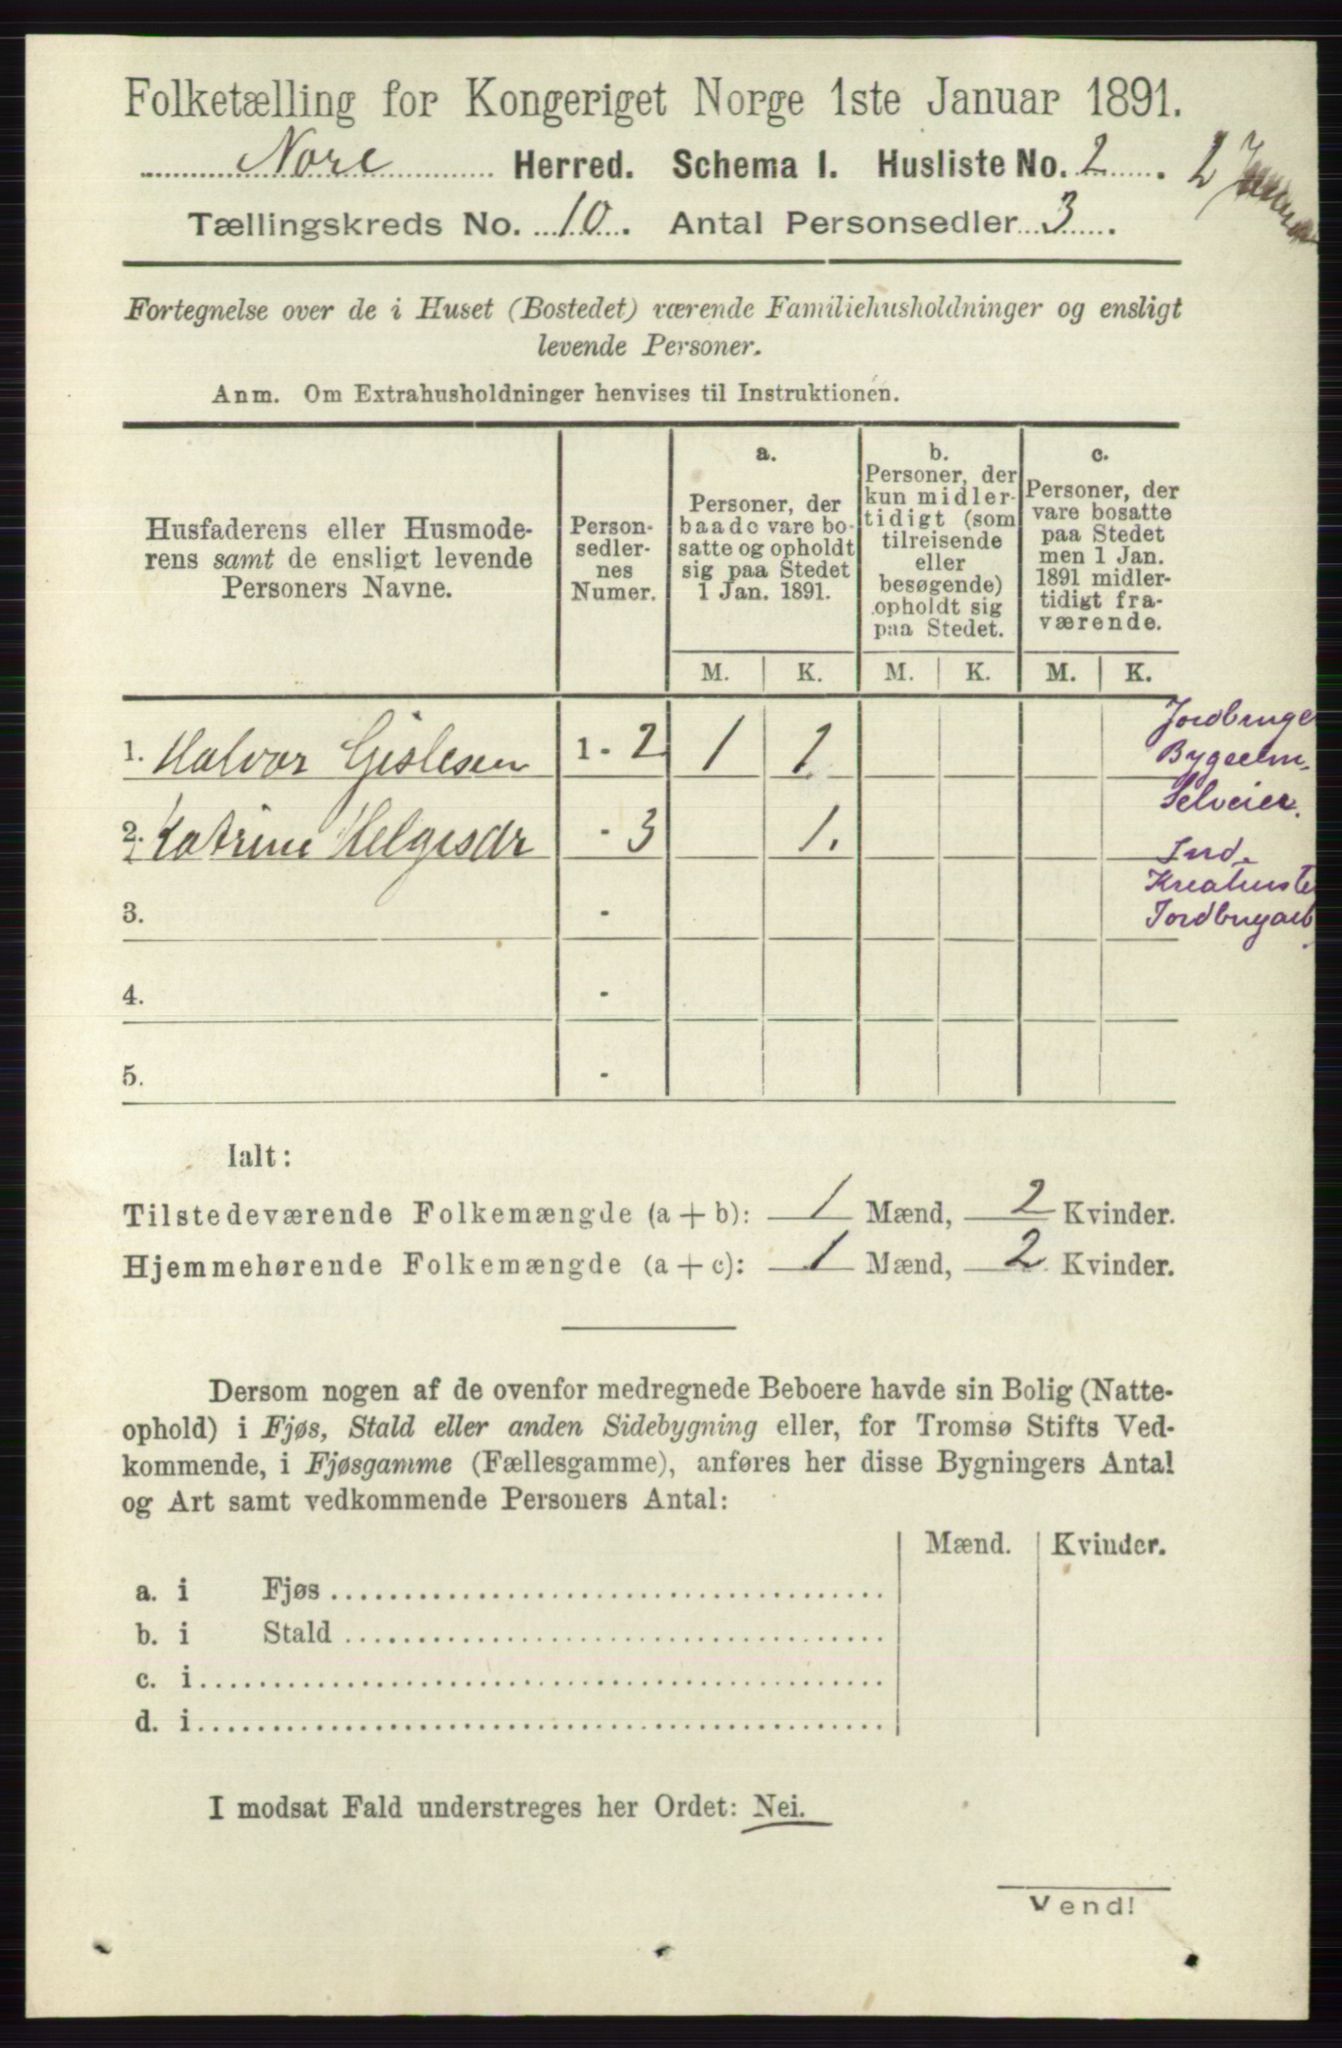 Folketælling for Kongeriget Norge 1ste Januar 1891.
Nore Herred. Schema I. Husliste No. 2. 2
Tællingskreds No. 10. Antal Personsedler 3.
Fortegnelse over de i Huset (Bostedet) værende Familiehusholdninger og ensligt
levende Personer.
Anm. Om Extrahusholdninger henvises til Instruktionen.
Husfaderens eller Husmode-
rens samt de ensligt levende
Personers Navne.
Person-
sedler-
nes
Numer.
a.
Personer, der
baade vare bo-
satte og opholdt
sig paa Stedet
1 Jan. 1891.
b.
Personer, der
kun midler-
tidigt (som
tilreisende
eller
besøgende)
opholdt sig
paa Stedet.
c.
Personer, der
vare bosatte
paa Stedet
men 1 Jan.
1891 midler-
tidigt fra-
værende.
M. K. M. K. M. K.
1. Halvor Gislesen 1 - 2 1 1
Jordbruge
Selveier.
2. Katrine Helgesdr - 3 1.
Ind.
3. -
4. -
5. -
Ialt:
Tilstedeværende Folkemængde (a + b): 1 Mænd, 2 Kvinder.
Hjemmehørende Folkemængde (a + c): 1 Mænd, 2 Kvinder.
Dersom nogen af de ovenfor medregnede Beboere havde sin Bolig (Natte-
ophold) i Fjøs, Stald eller anden Sidebygning eller, for Tromsø Stifts Ved-
kommende, i Fjøsgamme (Fællesgamme), anføres her disse Bygningers Antal
og Art samt vedkommende Personers Antal:
Mænd. Kvinder.
a. i Fjøs
b. i Stald
c. i
d. i
I modsat Fald understreges her Ordet: Nei.
Vend!